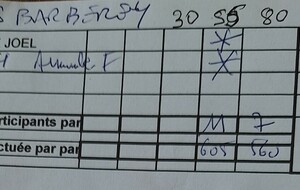 S BARBEREY 30 55 80
JOEL
Armande F
ticipants par 11 7
ctuée par par 605 560